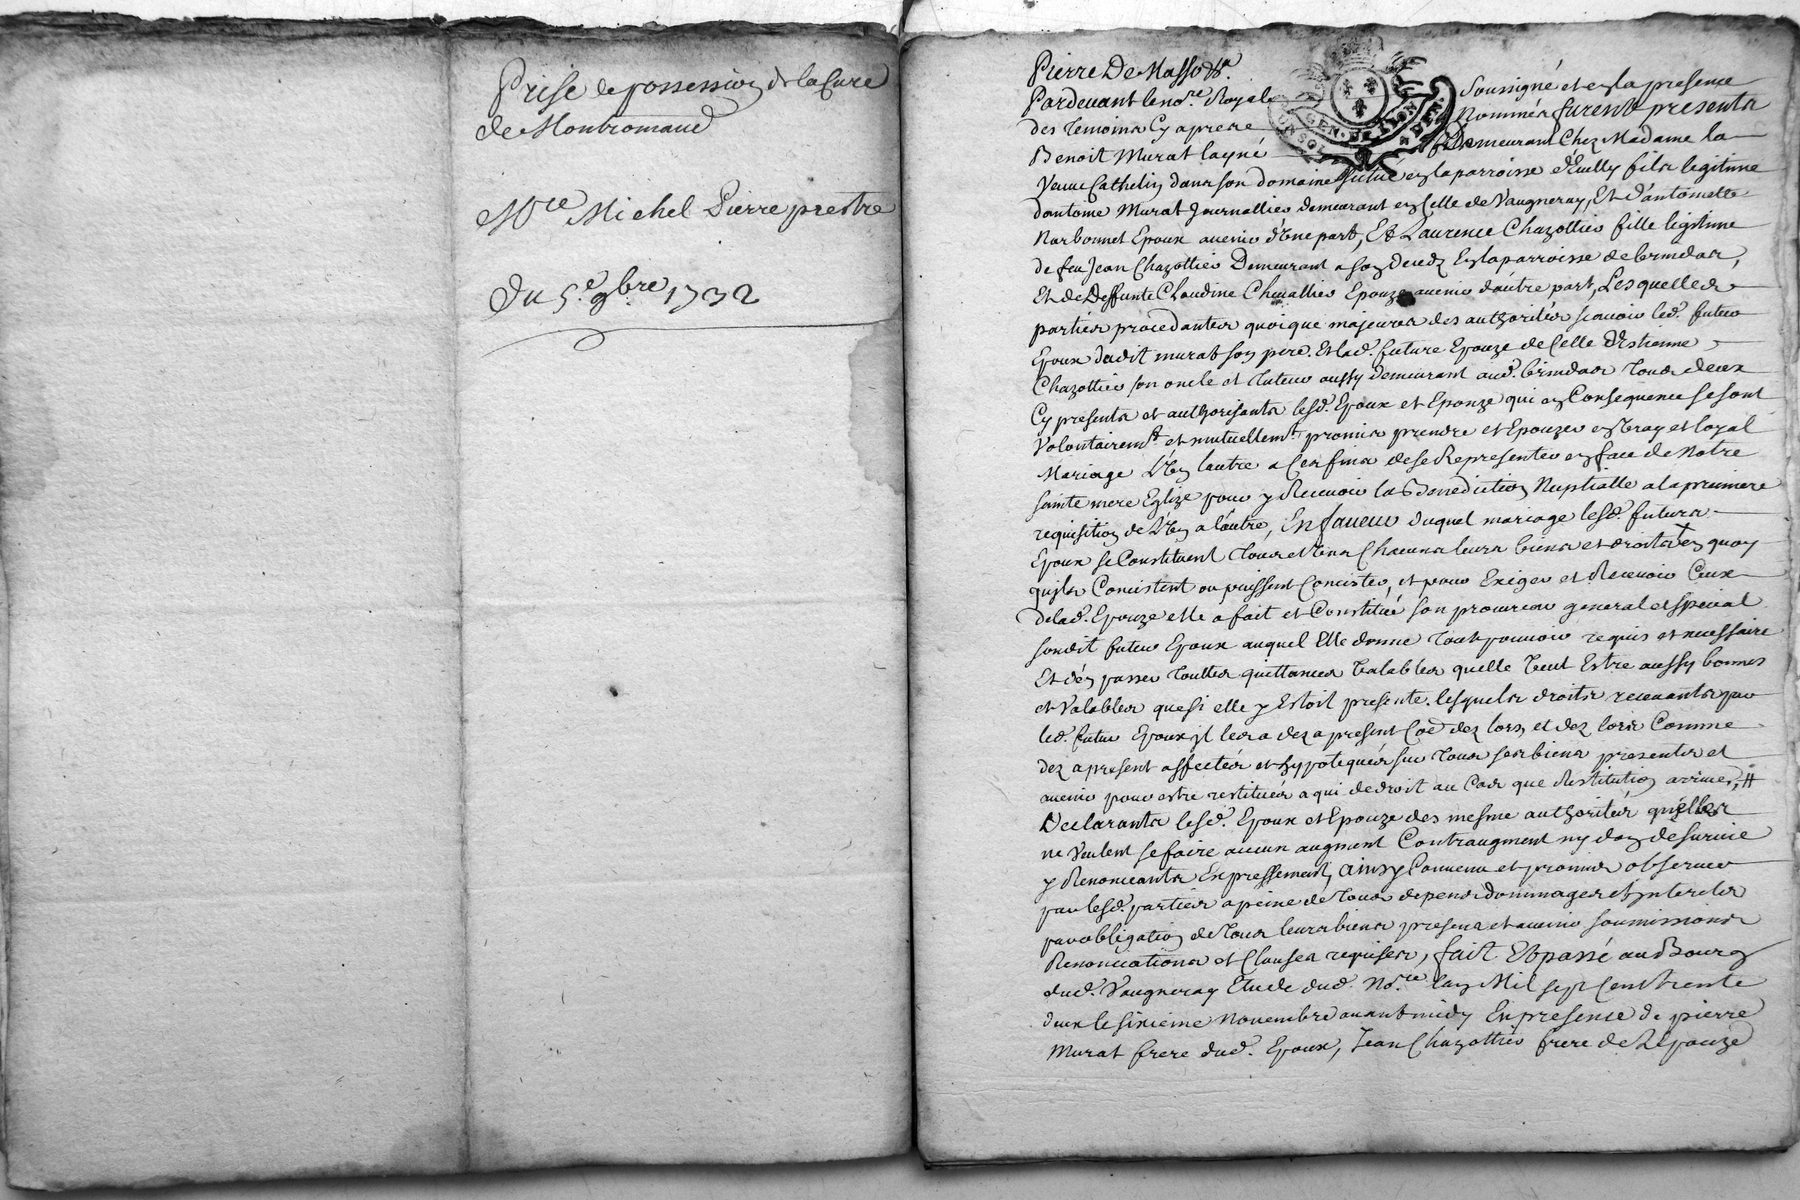 Prise de possession de la Cure
de Montromand
Mre Michel Pierre prestre
Du 5e 9bre 1732
Pierre De Masso &a.
Pardevant le nore. Royal Soussigné et en la presence
des Temoins Cy apres Nommés furent presents
Benoit Murat layné Demeurant Chez Madame la
Veuve Cathelin dans son domaine situé en la parroisse
GEN. DE LYON
fils legitime
d'antoine Murat Journallier demeurant en Celle de Vaugneray, Et d'antoinette
Narbonnet Epoux avenir d'Une part, Et Laurence Chazottier fille legitime
de feu Jean Chazottier Demeurant a son deced en la parroisse de brindas,
Et de Deffunte Claudine Chevallier Epouze avenir d'autre part, Lesquelles
parties procedantes quoique majeures des authorités scavoir led. futur
Epoux dudit murat son pere. Et lad. future Epouze de Celle d'Estienne
Chazottier son oncle et Tuteur aussy demeurant aud. brindas Tous deux
Cy presents et authorisants lesd. Epoux et Epouze qui en Consequence se sont
Volontairemt. et mutuellemt. promis prendre et Epouzer en Vray et loyal
Mariage L'Un lautre a Ces fins de se Representer en face de Notre
sainte mere Eglize pour y Recevoir la Benediction Nuptialle a la premiere
requisition de L'Un a lautre, En faveur duquel mariage lesd. futurs
Epoux se Constituent Tous et Uns Chacuns leurs biens et droits en quoy
quils Concistent ou puissent Concister, et pour Exiger et Recevoir Ceux
de lad. Epouze elle a fait et Constitué son procureur general et special
sondit futur Epoux auquel Elle donne Tout pouvoir requis et necessaire
Et d'en passer Touttes quittances Valables quelle Veut Estre aussy bonnes
et Valables que si elle y Estoit presente. lesquels droits recevants par
led. futur Epoux il les a dez a present Coe dez lors, et dez lors Comme
dez a present affectés et hypotequés sur Tous ses biens presents et
avenir pour estre restitués a qui de droit au Cas que Restitution arrive, #
Declarants lesd. Epoux et Epouze des mesme authorités quelles
ne Veulent se faire aucun augment Contraugment ny don de survie
y Renonceants Expressement, Ainsy Convenu et promis observer
par lesd. parties a peine de Tous depens dommages et Interets
par obligation de Tous leurs biens presens et avenir soumissions
Renonciations et Clauses requises, fait Et passé au Bourg
dud. Vaugneray Etude dud. Nore. lan Mil sept Cent trente
deux le sixieme Novembre avant midy En presence de pierre
Murat frere dud. Epoux, Jean Chazottier frere de L'Epouze